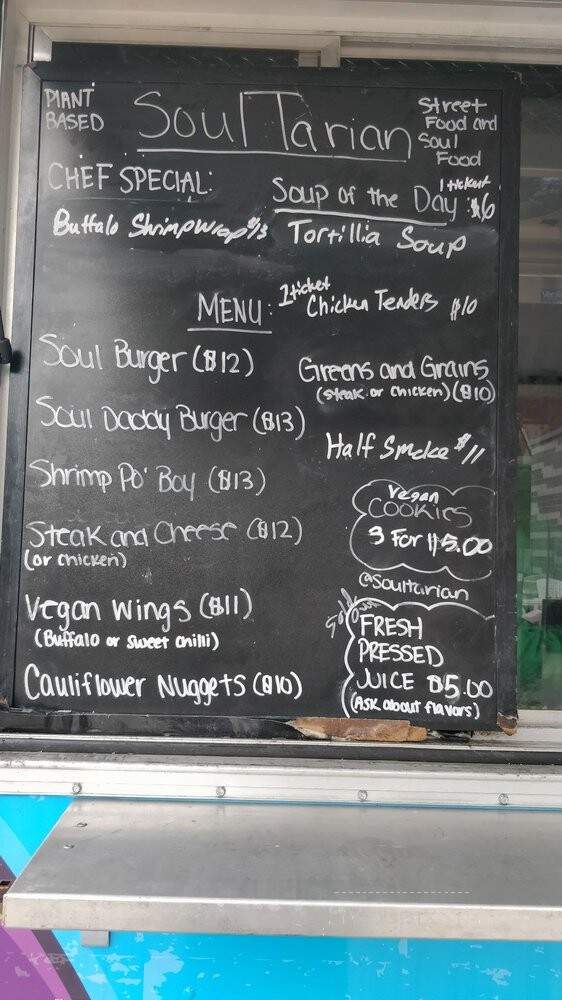 PLANT
BASED
SoulTarian
Street
Food and
Soul
Food
CHEF SPECIAL:
Buffalo Shrimp Wrap $13
1 ticket
Soup of the Day $6
Tortillia Soup
MENU:
1 ticket
Chicken Tenders $10
Soul Burger ($12)
Soul Daddy Burger ($13)
Shrimp Po' Boy ($13)
Steak and Cheese ($12)
(or chicken)
Vegan Wings ($11)
(Buffalo or sweet chilli)
Cauliflower Nuggets ($10)
Greens and Grains
(steak or chicken) ($10)
Half Smoke $11
Vegan
COOKIES
3 For $5.00
@soultarian
Sold Out
FRESH
PRESSED
JUICE $5.00
(Ask about flavors)